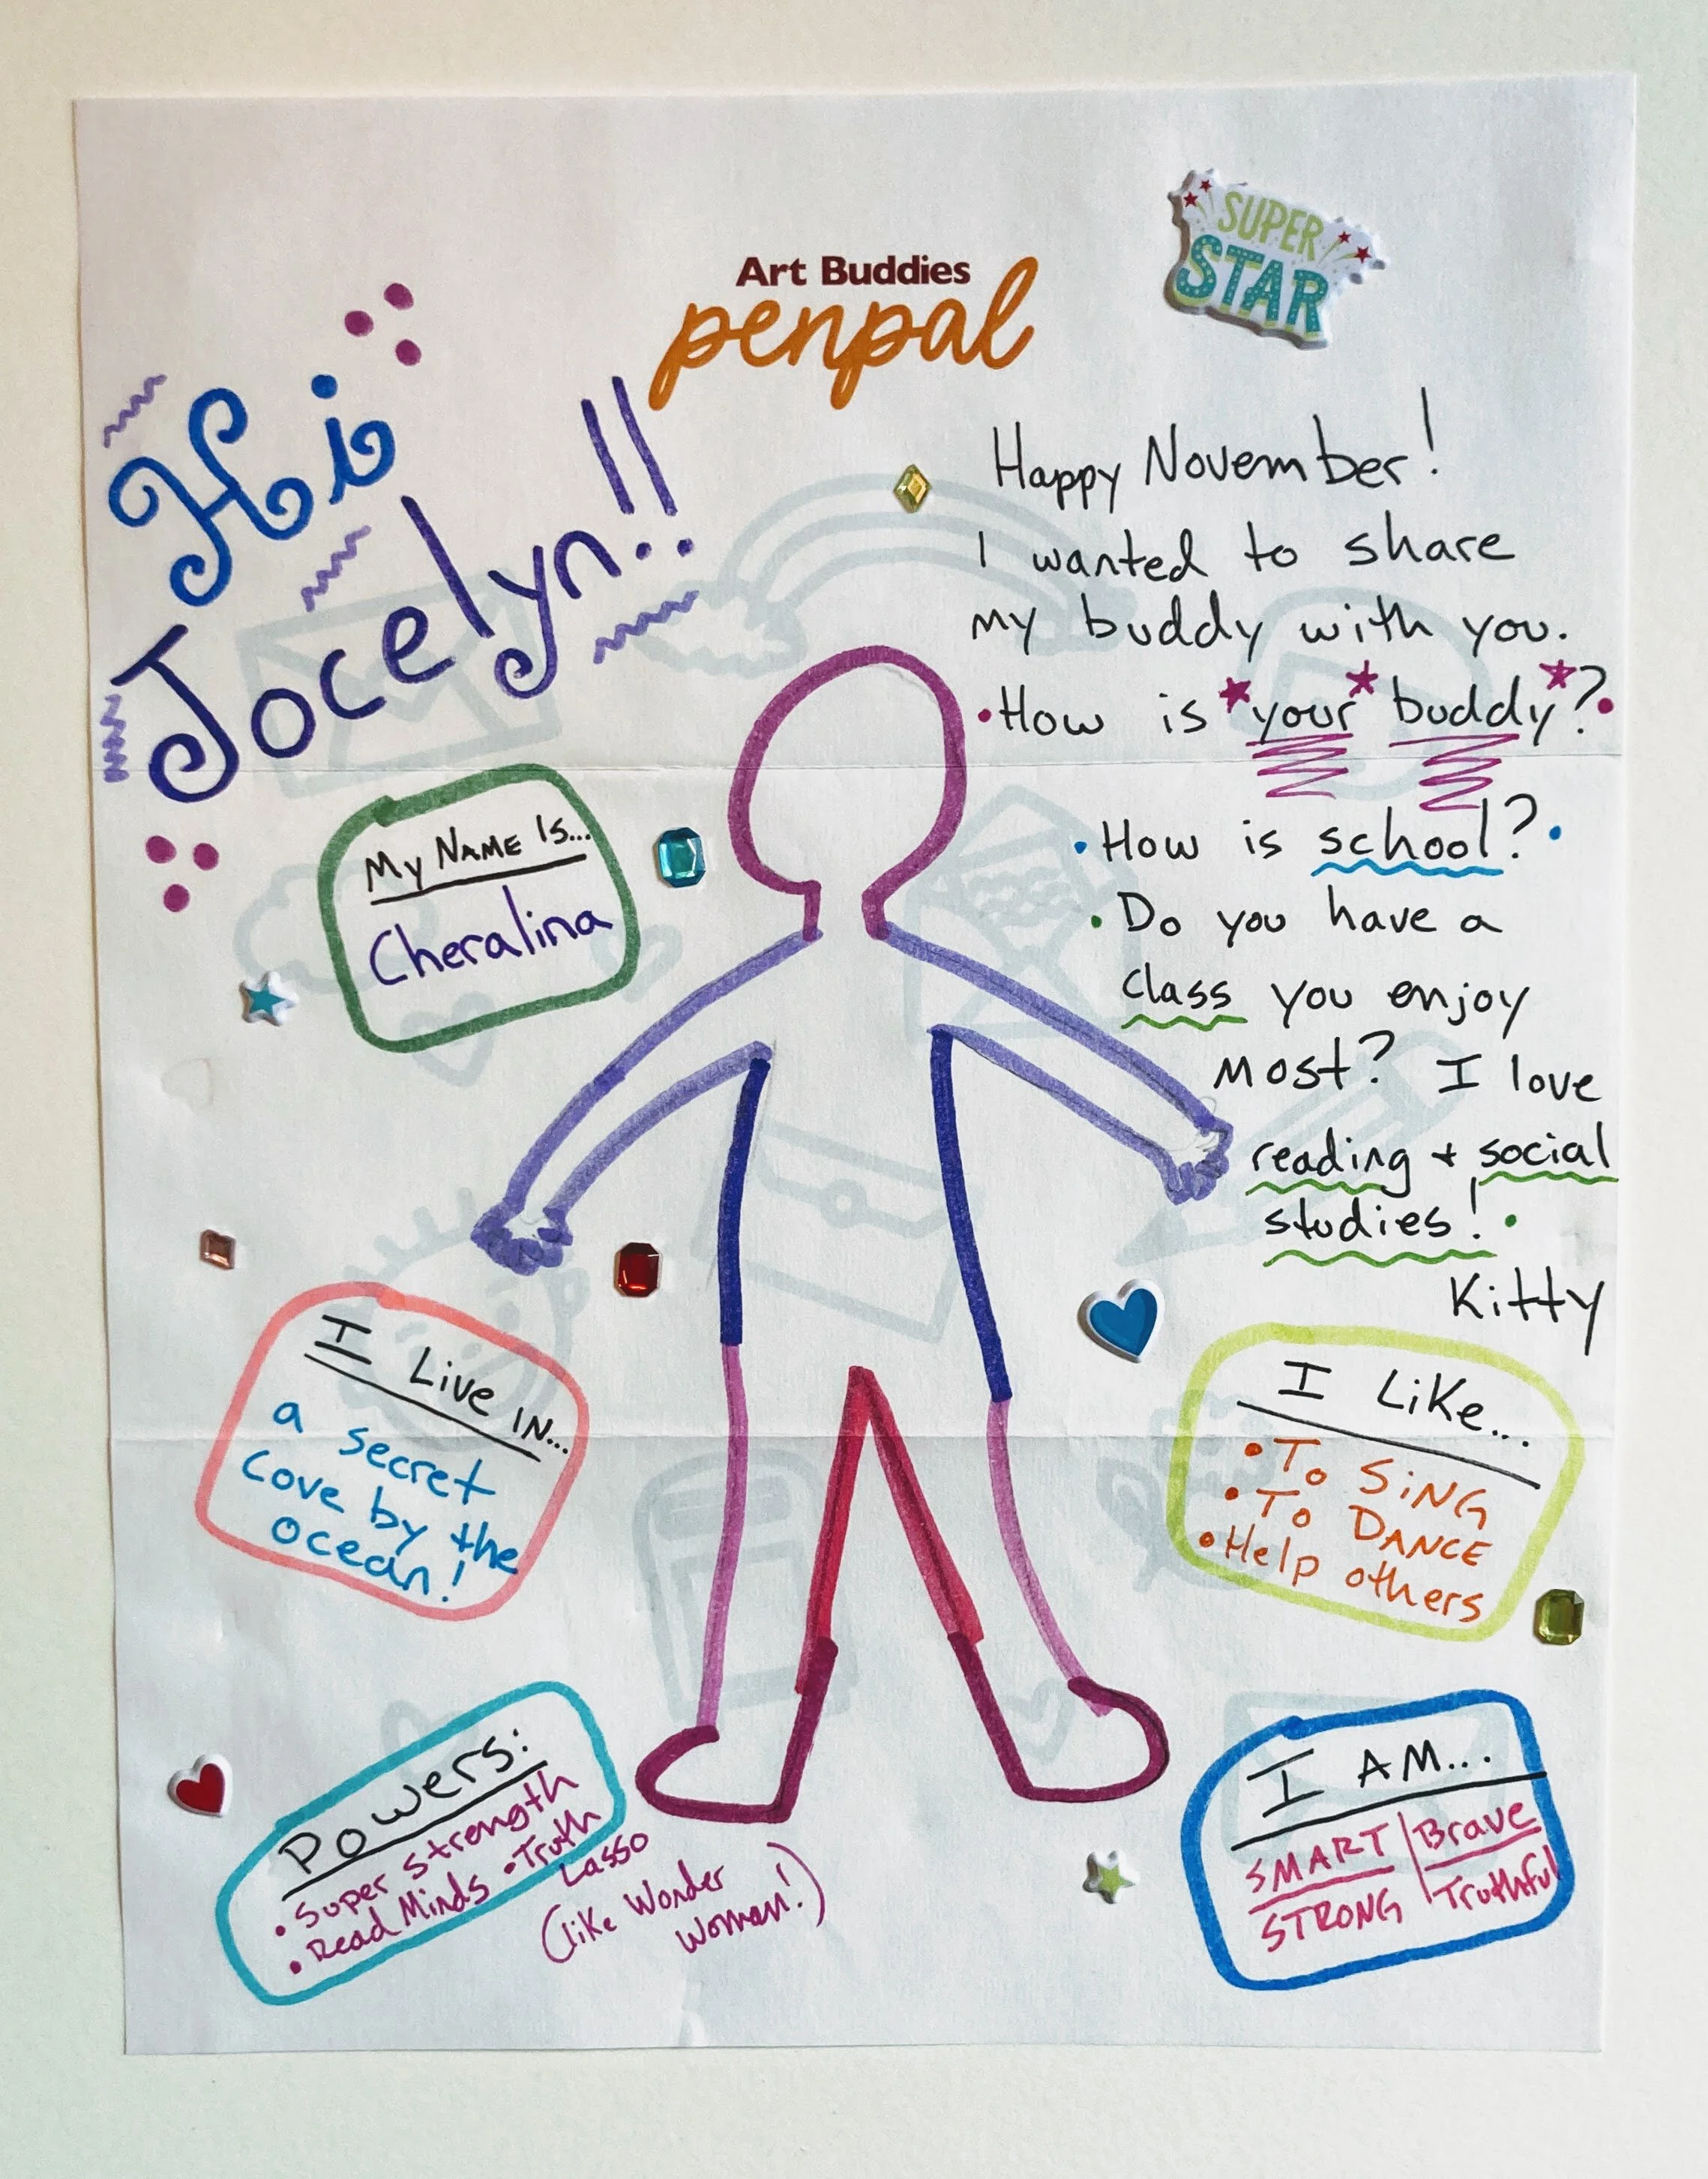 SUPER
STAR
Art Buddies
penpal
Hi
Jocelyn!!
Happy November!
I wanted to share
my buddy with you.
•How is *your* buddy*?•
•How is school?•
•Do you have a
class you enjoy
most? I love
reading + social
studies!•
Kitty
My Name Is...
Cheralina
I Live IN...
a secret
cove by the
ocean!
I Like...
•To SiNG
•To DANCE
•Help others
Powers:
•Super Strength
•Read Minds •Truth
Lasso
(like Wonder
Woman!)
I AM...
SMART | Brave
STRONG | Truthful